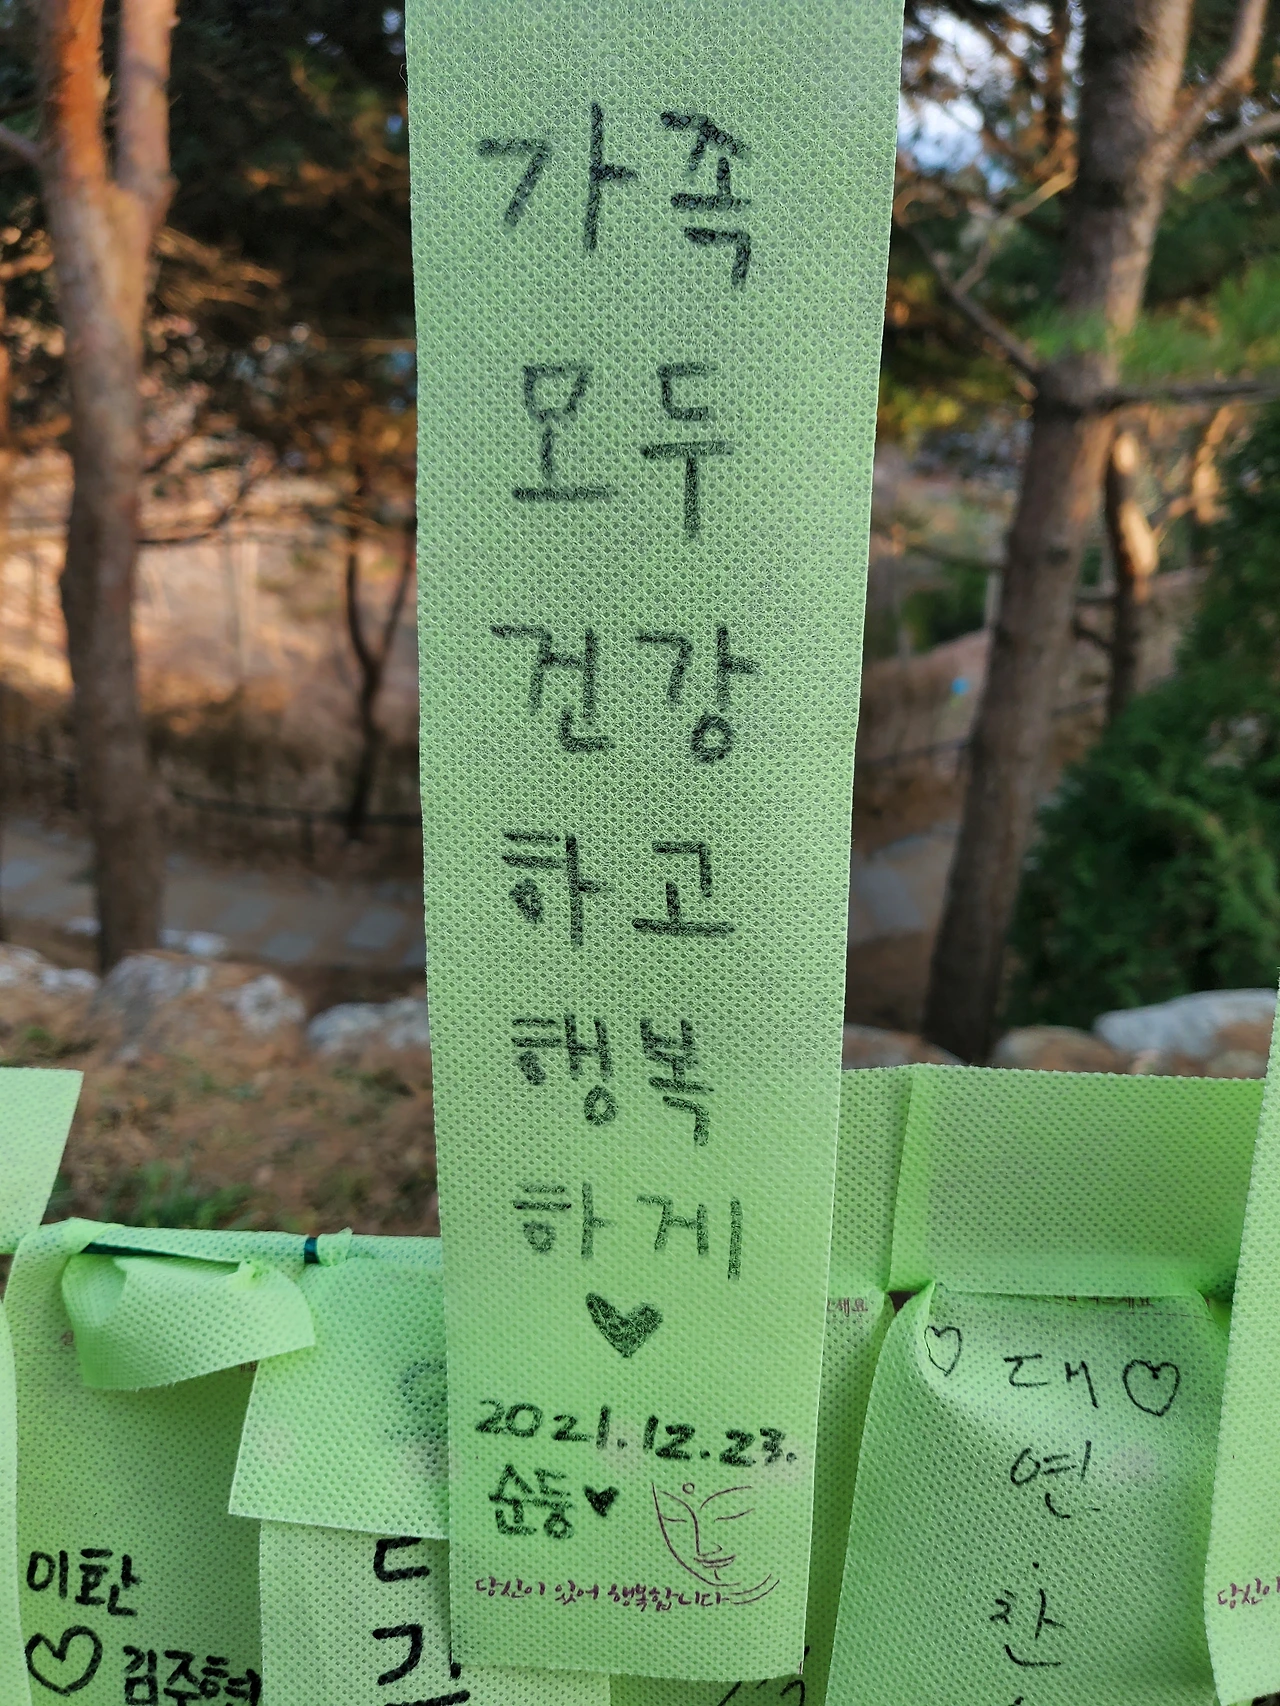 가족
모두
건강
하고
행복
하게
2021.12.23.
순둥
당신이 있어 행복합니다
세요
대
연
찬
이환
김주혁
당신이